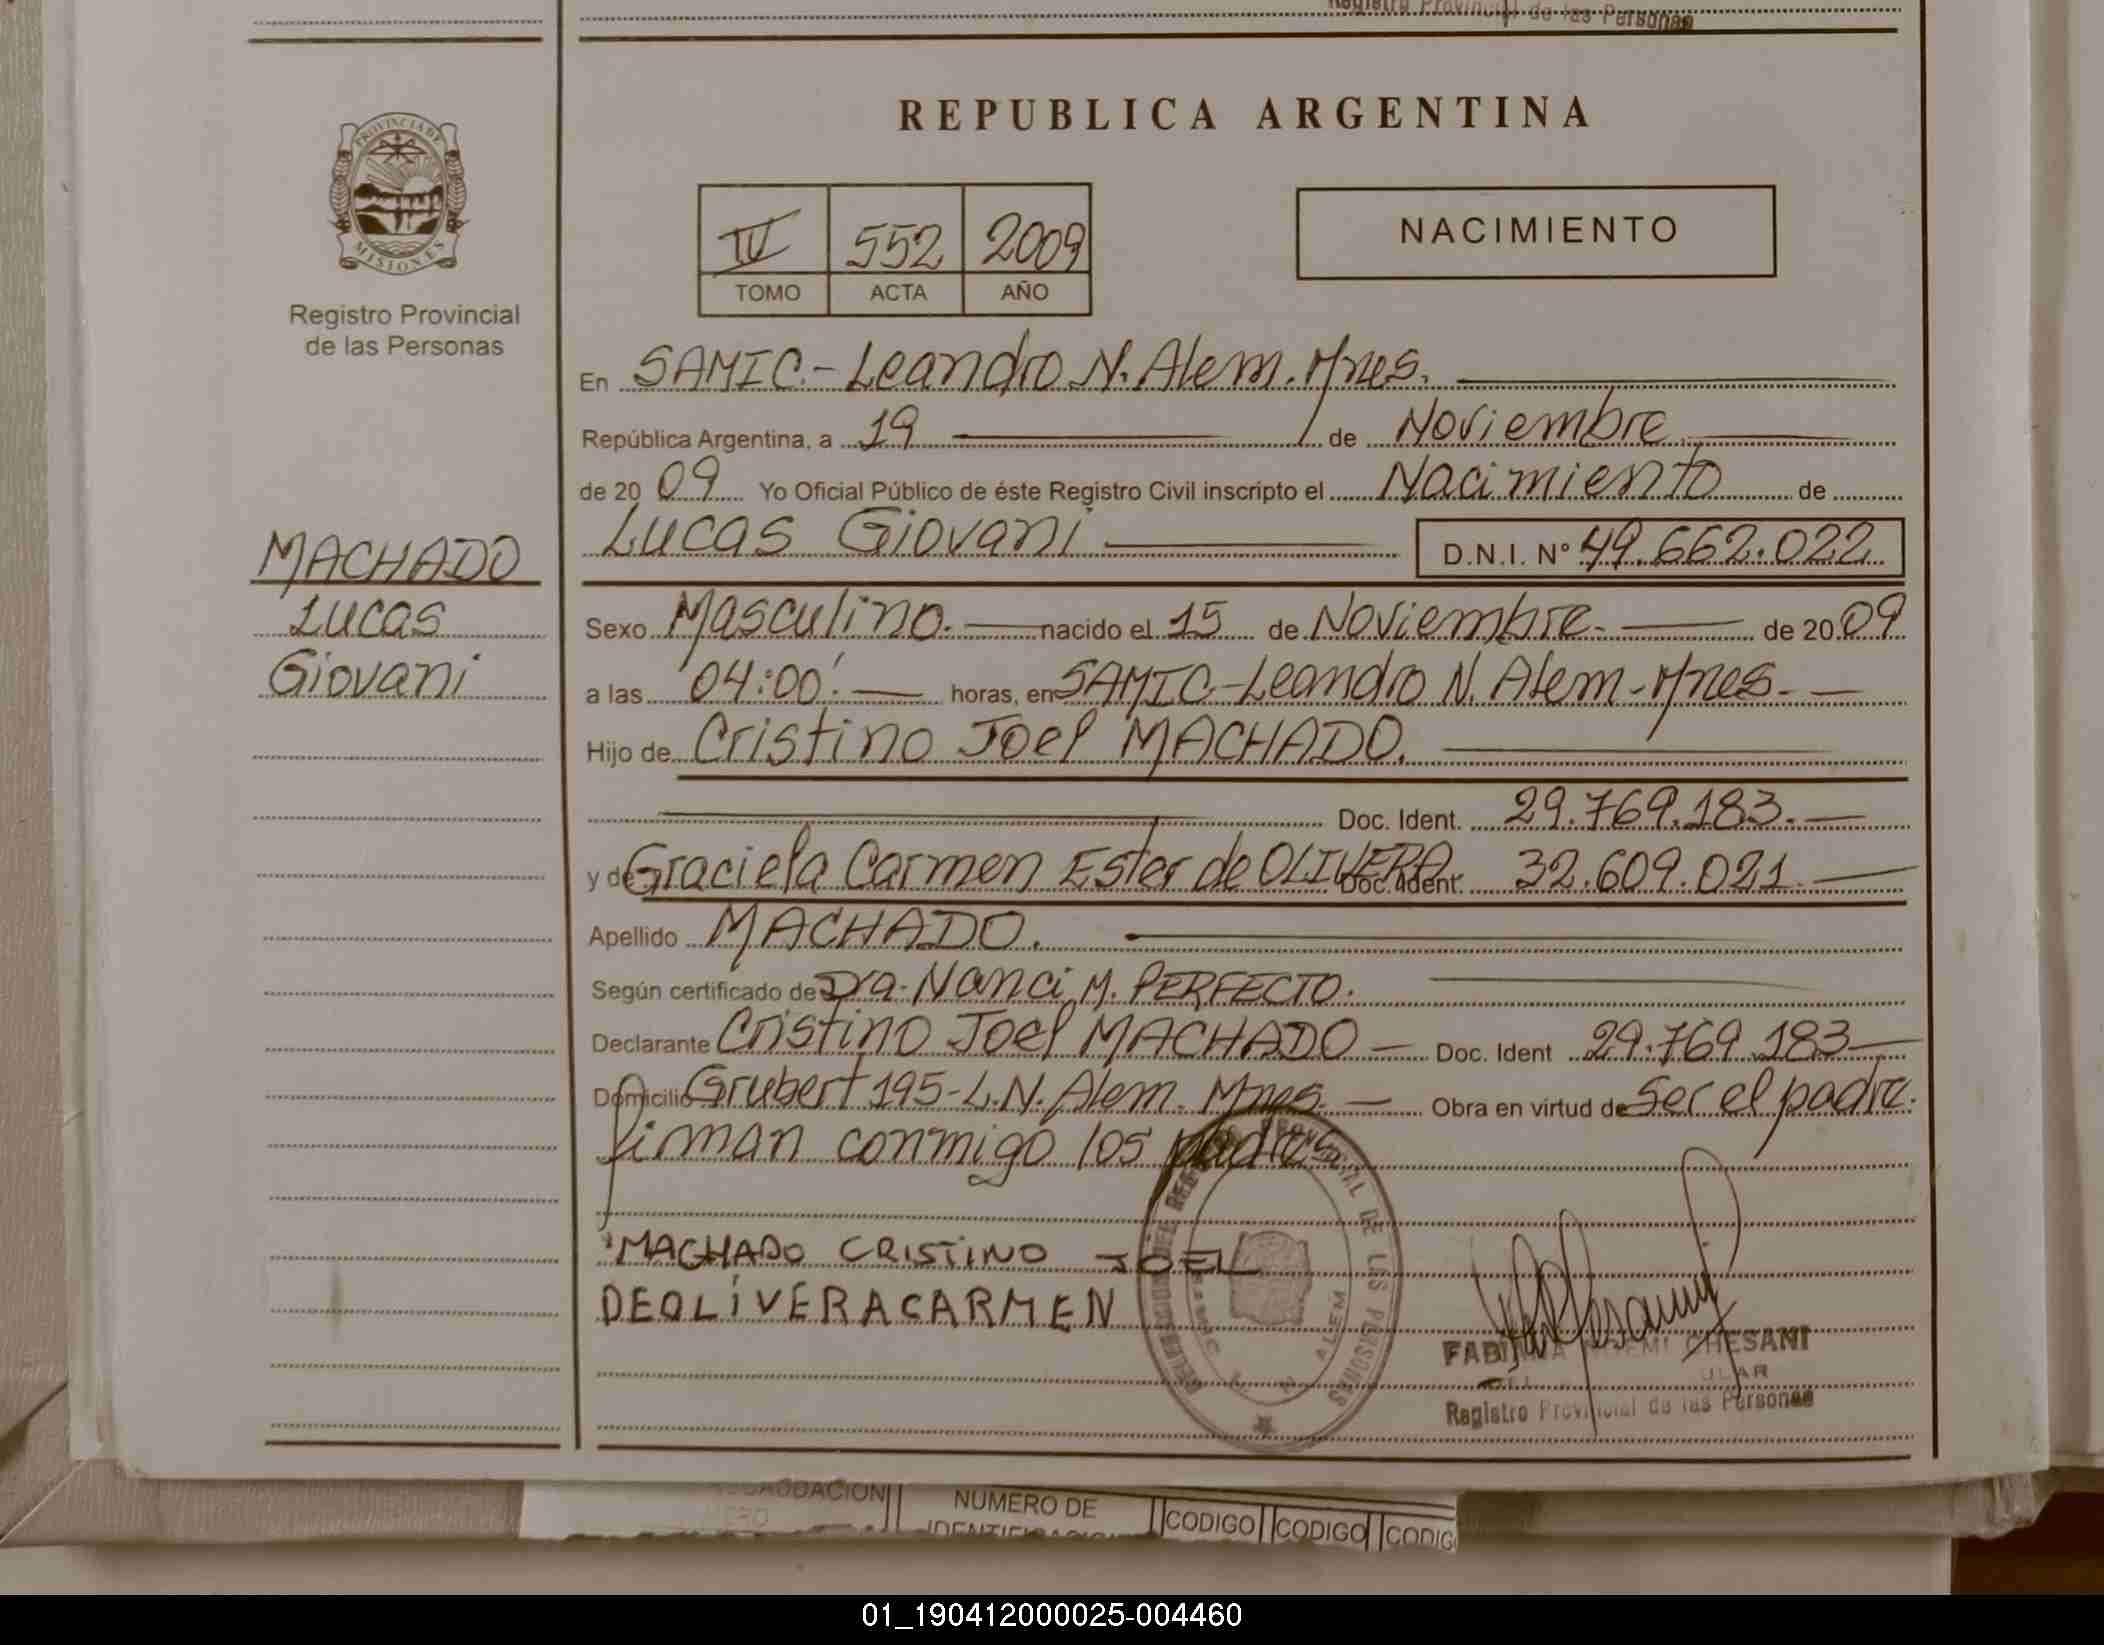 Registro Provincial de las Personas
REPUBLICA ARGENTINA
PROVINCIA DE
MISIONES
Registro Provincial
de las Personas
IV 552 2009
TOMO ACTA AÑO
NACIMIENTO
En SAMIC.- Leandro N. Alem. Mnes.
República Argentina, a 19 de Noviembre
de 20 09 Yo Oficial Público de éste Registro Civil inscripto el Nacimiento de
Lucas Giovani D.N.I. Nº 49.662.022
MACHADO
Lucas
Giovani
Sexo Masculino. nacido el 15 de Noviembre. de 20 09
a las 04:00'. horas, en SAMIC-Leandro N. Alem-Mnes.
Hijo de Cristino Joel MACHADO.
Doc. Ident. 29.769.183.
y de Graciela Carmen Ester de OLIVERA Doc. Ident. 32.609.021
Apellido MACHADO.
Según certificado de Dra. Nanci M. PERFECTO.
Declarante Cristino Joel MACHADO Doc. Ident 29.769.183
Domicilio Grubert 195-L.N. Alem. Mnes. Obra en virtud de Ser el padre.
firman conmigo los padres
MACHADO CRISTINO JOEL
DEOLIVERACARMEN
PROVINCIAL DE LAS PERSONAS
ALEM
CHESANI
Registro Provincial de las Personas
NUMERO DE
CODIGO CODIGO CODIG
01_190412000025-004460